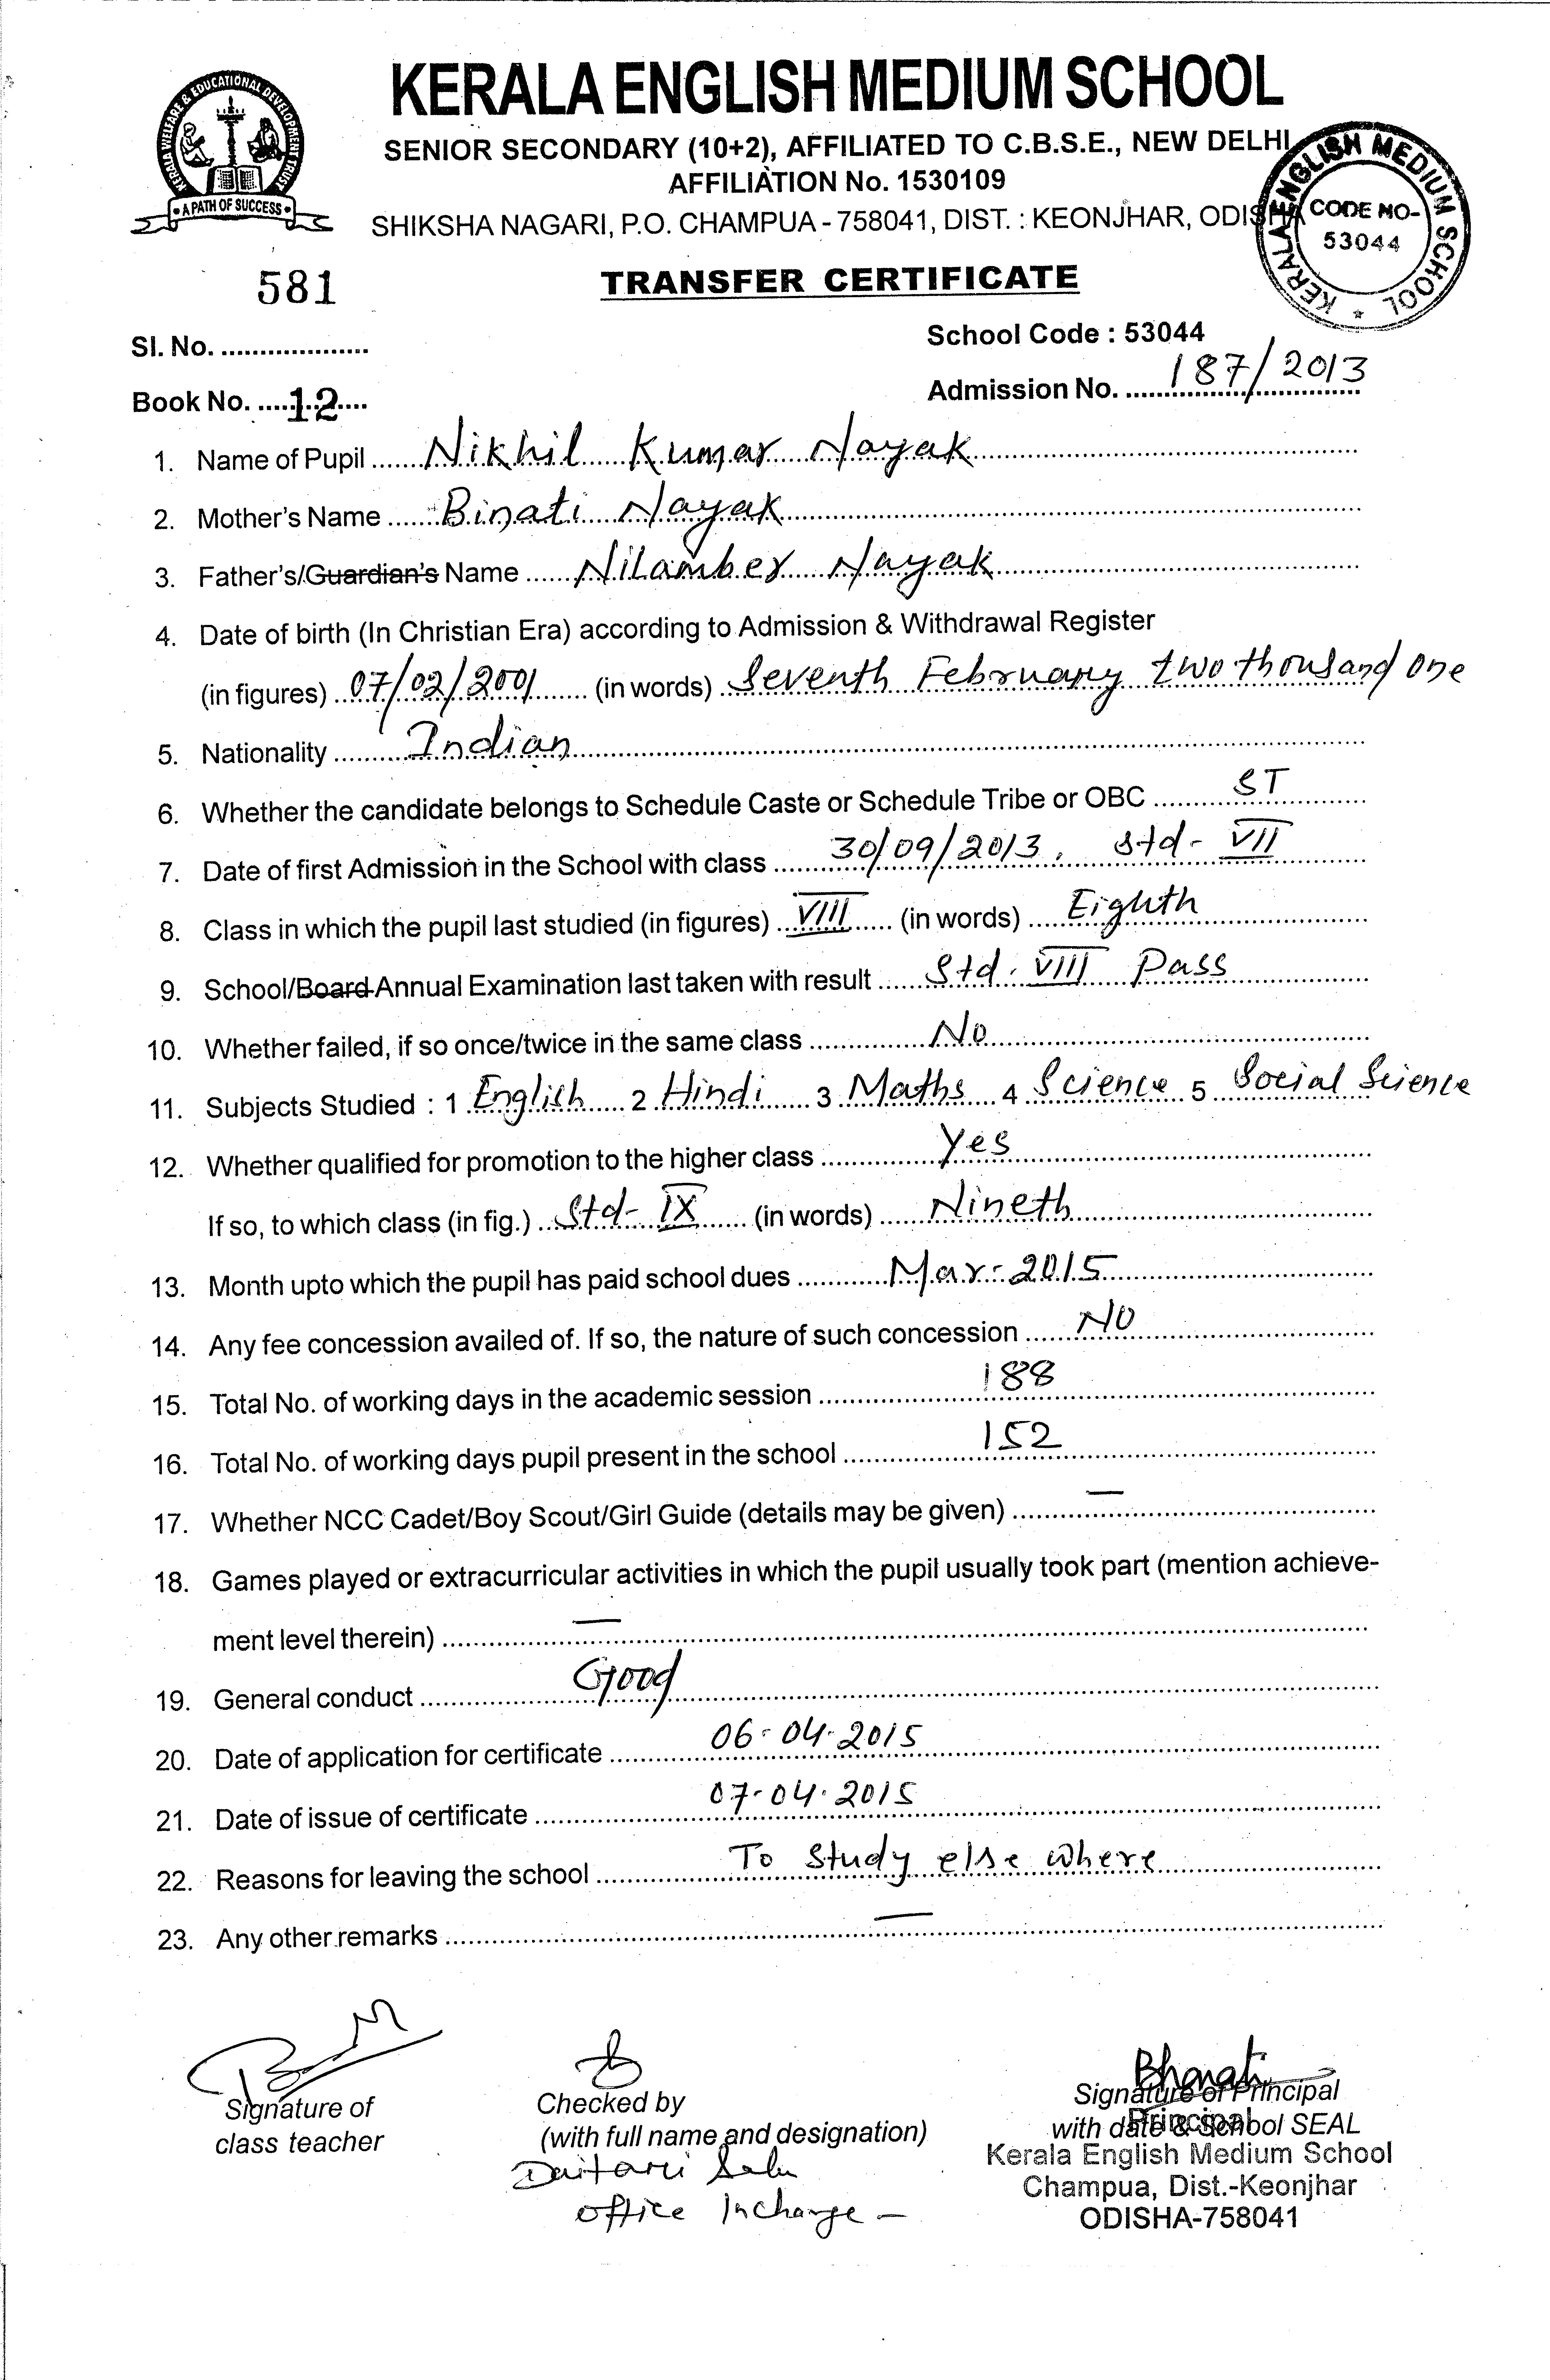 KERALA WELFARE & EDUCATIONAL DEVELOPMENT TRUST
• A PATH OF SUCCESS •
KERALA ENGLISH MEDIUM SCHOOL
SENIOR SECONDARY (10+2), AFFILIATED TO C.B.S.E., NEW DELHI
AFFILIATION No. 1530109
SHIKSHA NAGARI, P.O. CHAMPUA - 758041, DIST. : KEONJHAR, ODISHA
KERALA ENGLISH MEDIUM SCHOOL
CODE NO-
53044
581
TRANSFER CERTIFICATE
Sl. No. ....................
School Code : 53044
Book No. .....12....
Admission No. ......187/2013
1. Name of Pupil ....... Nikhil Kumar Nayak
2. Mother's Name ...... Binati Nayak
3. Father's/Guardian's Name ...... Nilamber Nayak
4. Date of birth (In Christian Era) according to Admission & Withdrawal Register
(in figures) ..07/02/2001...... (in words) .. Seventh February two thousand one
5. Nationality ......... Indian
6. Whether the candidate belongs to Schedule Caste or Schedule Tribe or OBC .......... ST
7. Date of first Admission in the School with class ....... 30/09/2013, Std- VII
8. Class in which the pupil last studied (in figures) .. VIII ...... (in words) .... Eighth
9. School/Board Annual Examination last taken with result ...... Std. VIII Pass
10. Whether failed, if so once/twice in the same class ............... No
11. Subjects Studied : 1 English 2 Hindi 3 Maths 4 Science 5 Social Science
12. Whether qualified for promotion to the higher class ............... Yes
If so, to which class (in fig.) .. Std- IX ...... (in words) ..... Nineth
13. Month upto which the pupil has paid school dues ........... Mar-2015
14. Any fee concession availed of. If so, the nature of such concession ...... NO
15. Total No. of working days in the academic session ............... 188
16. Total No. of working days pupil present in the school ............... 152
17. Whether NCC Cadet/Boy Scout/Girl Guide (details may be given) .......... —
18. Games played or extracurricular activities in which the pupil usually took part (mention achieve-
ment level therein) .................. —
19. General conduct .................. Good
20. Date of application for certificate ............ 06-04-2015
21. Date of issue of certificate .................. 07-04-2015
22. Reasons for leaving the school ............... To study else where
23. Any other remarks .................. —
Bharati
Signature of class teacher
Checked by
(with full name and designation)
Daitari Sahu
office Incharge —
Signature of Principal
with date & School SEAL
Principal
Kerala English Medium School
Champua, Dist.-Keonjhar
ODISHA-758041